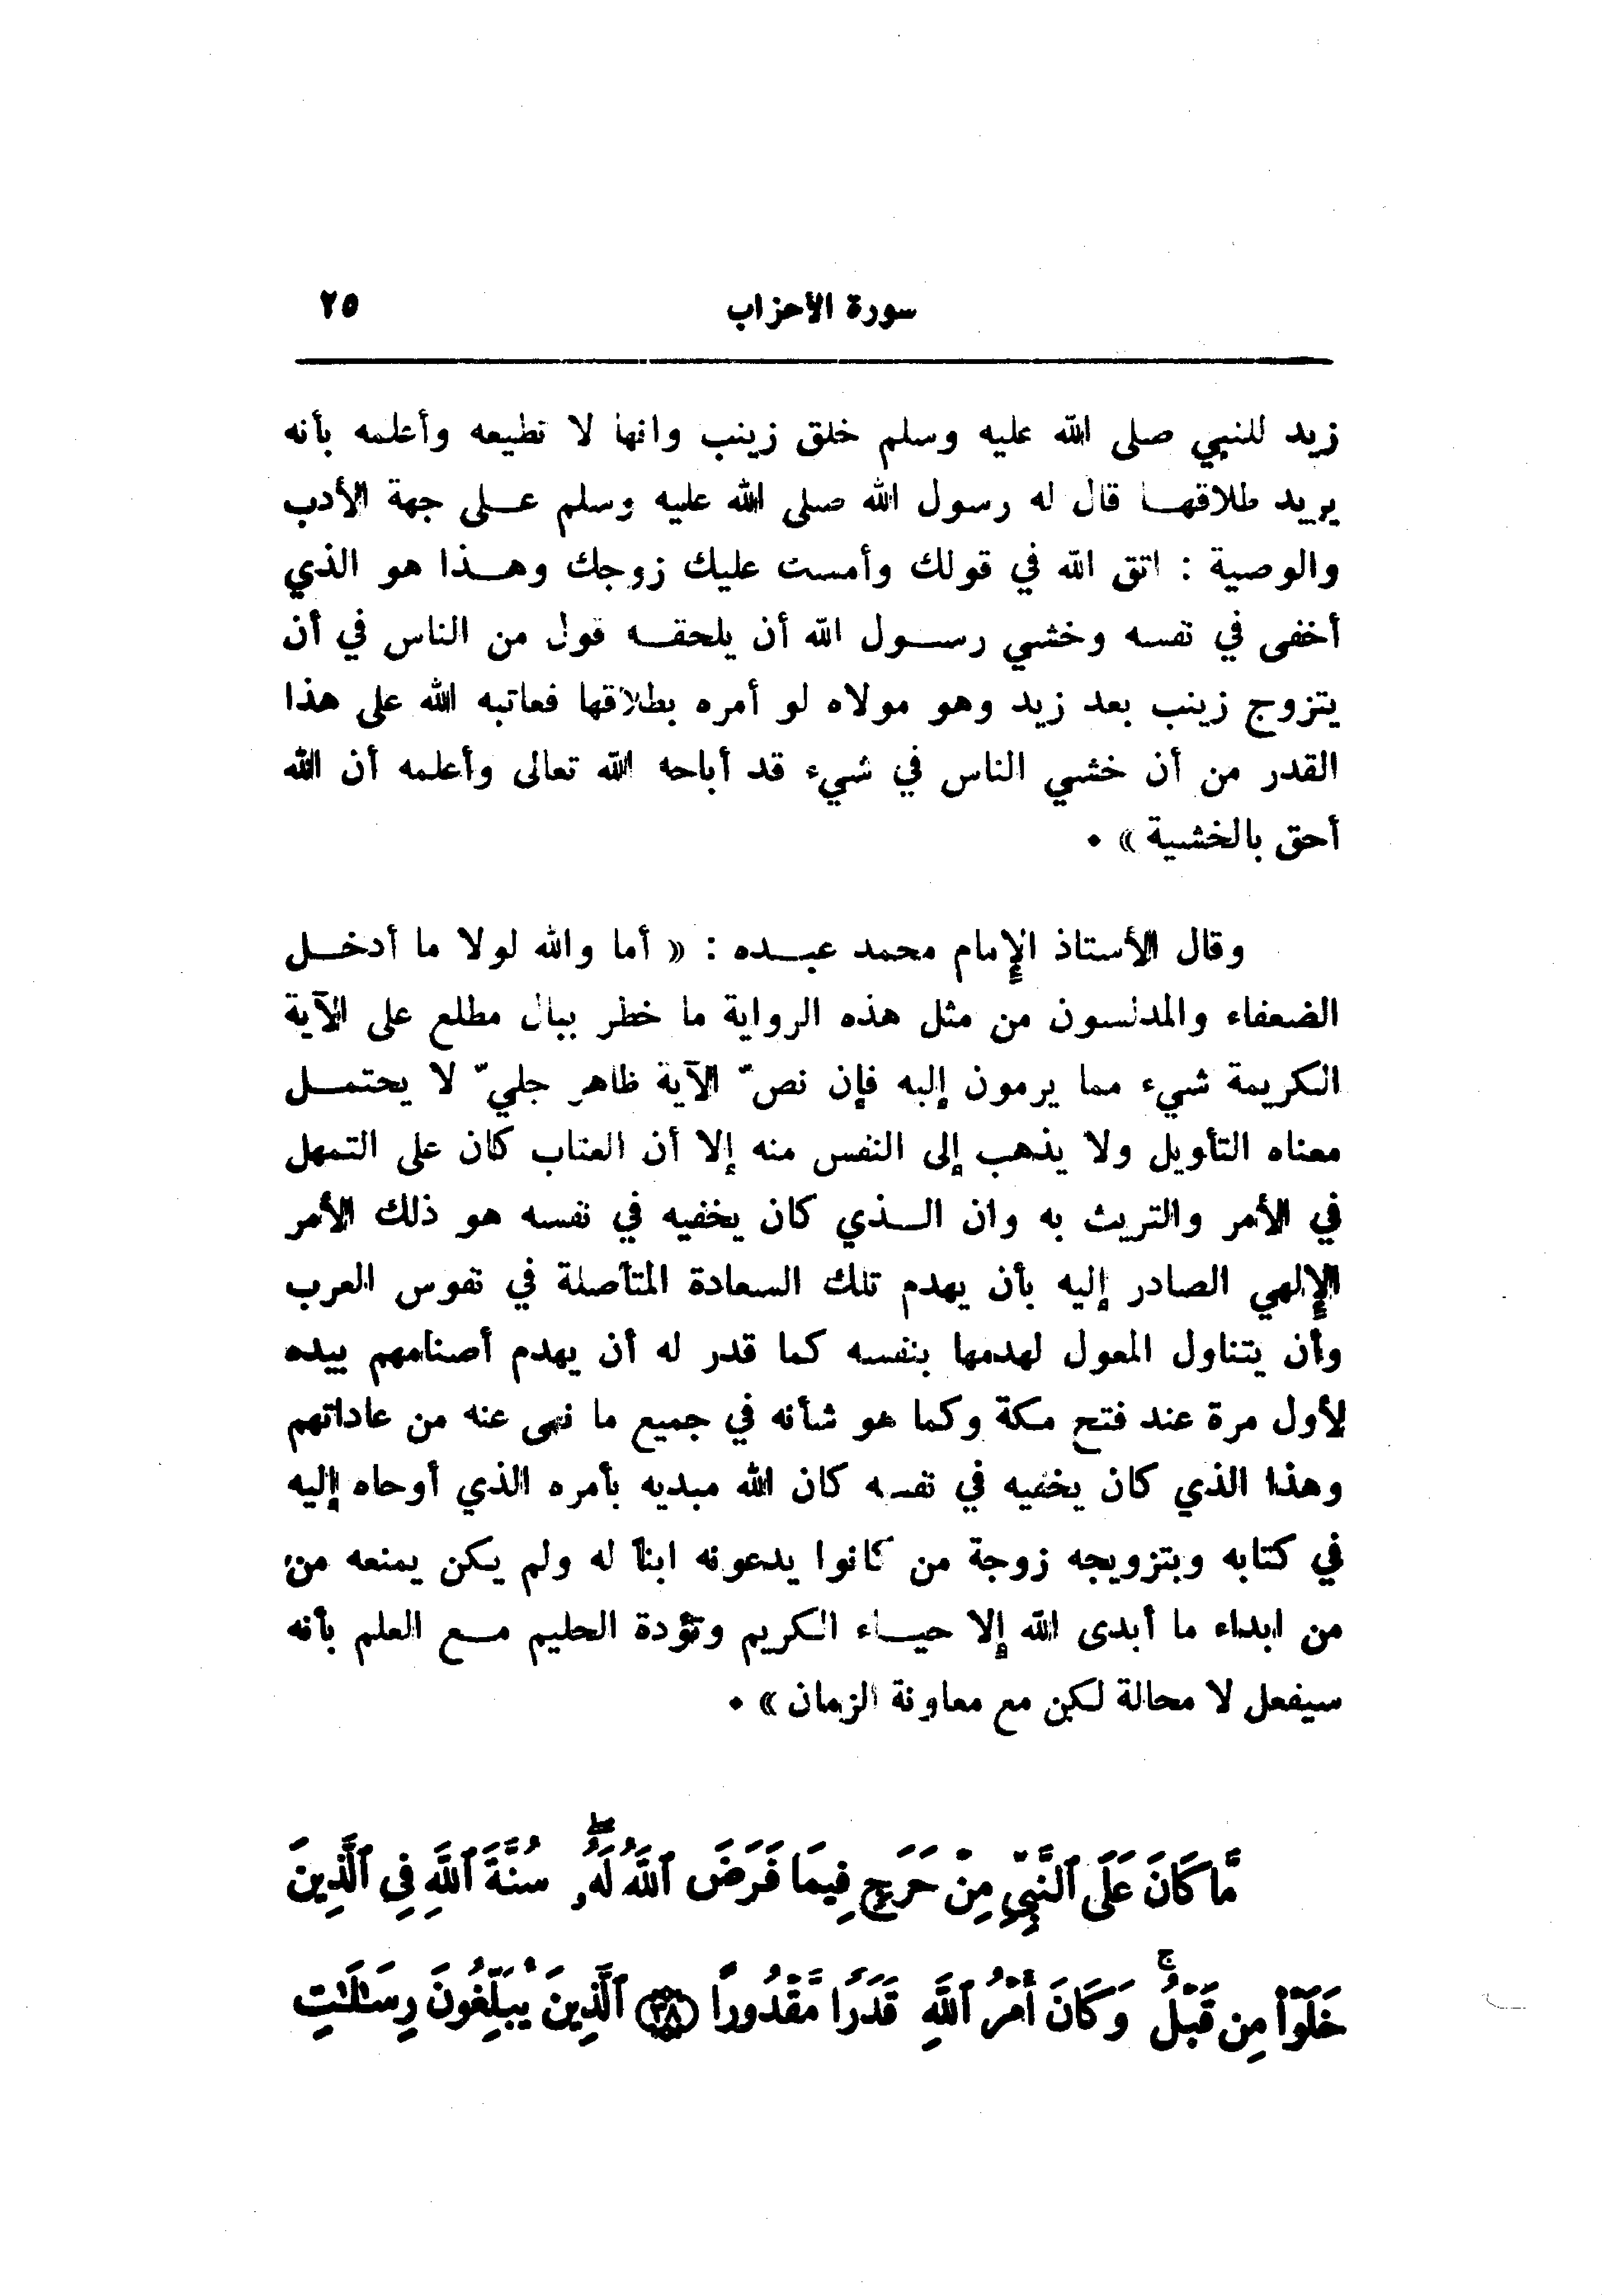 سورة الأحزاب ٢٥
زيد للنبي صلى الله عليه وسلم خلق زينب وانها لا تطيعه وأعلمه بأنه
يريد طلاقهـا قال له رسول الله صلى الله عليه وسلم عـلى جهة الأدب
والوصية : اتق الله في قولك وأمست عليك زوجك وهـذا هو الذي
أخفى في نفسه وخشي رسـول الله أن يلحقـه قول من الناس في أن
يتزوج زينب بعد زيد وهو مولاه لو أمره بطلاقها فعاتبه الله على هذا
القدر من أن خشي الناس في شيء قد أباحه الله تعالى وأعلمه أن الله
أحق بالخشية » ٠
وقال الأستاذ الإمام محمد عبـده : « أما والله لولا ما أدخـل
الضعفاء والمدلسون من مثل هذه الرواية ما خطر ببال مطلع على الآية
الكريمة شيء مما يرمون إليه فإن نصّ الآية ظاهر جليّ لا يحتمـل
معناه التأويل ولا يذهب إلى النفس منه إلا أن العتاب كان على التمهل
في الأمر والتريث به وان الـذي كان يخفيه في نفسه هو ذلك الأمر
الإلهي الصادر إليه بأن يهدم تلك السعادة المتأصلة في نفوس العرب
وأن يتناول المعول لهدمها بنفسه كما قدر له أن يهدم أصنامهم بيده
لأول مرة عند فتح مكة وكما هو شأنه في جميع ما نهى عنه من عاداتهم
وهذا الذي كان يخفيه في نفسه كان الله مبديه بأمره الذي أوحاه إليه
في كتابه وبتزويجه زوجة من كانوا يدعونه ابناً له ولم يكن يمنعه من
من ابداء ما أبدى الله إلا حيـاء الكريم وتؤدة الحليم مـع العلم بأنه
سيفعل لا محالة لكن مع معاونة الزمان » ٠
مَّا كَانَ عَلَى ٱلنَّبِيِّ مِنْ حَرَجٍ فِيمَا فَرَضَ ٱللَّهُ لَهُۥ ۖ سُنَّةَ ٱللَّهِ فِي ٱلَّذِينَ
خَلَوْا۟ مِن قَبْلُ ۚ وَكَانَ أَمْرُ ٱللَّهِ قَدَرًا مَّقْدُورًا ٣٨ ٱلَّذِينَ يُبَلِّغُونَ رِسَـٰلَـٰتِ